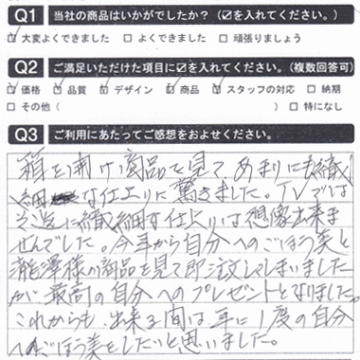 Q1 当社の商品はいかがでしたか？（☑を入れてください。）
☑ 大変よくできました □ よくできました □ 頑張りましょう
Q2 ご満足いただけた項目に☑を入れてください。（複数回答可）
☑ 価格 ☑ 品質 ☑ デザイン ☑ 商品 ☑ スタッフの対応 □ 納期
□ その他（ ） □ 特になし
Q3 ご利用にあたってご感想をおよせください。
箱を開け商品を見て、あまりにも繊
細な仕上りに驚きました。TVでは
本当に繊細な仕上りは想像出来ま
せんでした。今年から自分へのごほう美と
瀧澤様の商品を見て即注文してしまいました
が、最高の自分へのプレゼントとなりました。
これからも、出来る間は年に1度の自分
へごほう美をしたいと思いました。